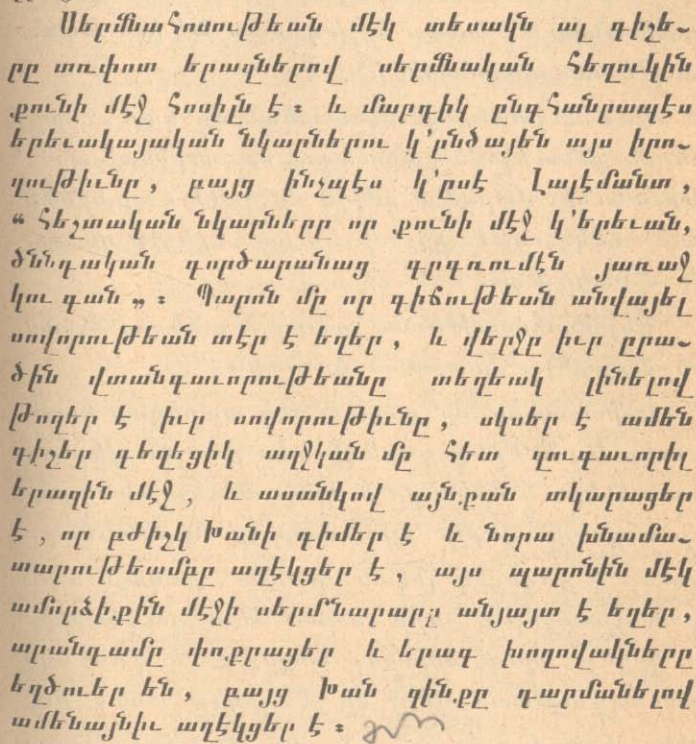 Սերմնահոսութեան մէկ տեսակն ալ գիշե֊
րը տռփոտ երազներով սերմնական հեղուկին
քունի մէջ հոսիլն է ։ և մարդիկ ընդհանրապէս
երեւակայական նկարներու կ'ընծայեն այս իրո֊
ղութիւնը , բայց ինչպէս կ'ըսէ Լալէմանտ ,
“ հեշտական նկարները որ քունի մէջ կ'երեւան,
ծննդական գործարանաց գրգռումէն յառաջ
կու գան „ ։ Պարոն մը որ գիճութեան անվայել
սովորութեան տէր է եղեր , և վերջը իւր ըրա֊
ծին վտանգաւորութեանը տեղեակ լինելով
թողեր է իւր սովորութիւնը , սկսեր է ամեն
գիշեր գեղեցիկ աղջկան մը հետ զուգաւորիլ
երազին մէջ , և ասանկով այնքան տկարացեր
է , որ բժիշկ Խանի դիմեր է և նորա խնամա֊
տարութեամբը աղէկցեր է , այս պարոնին մէկ
ամորձիքին մէջի սերմնարարը անյայտ է եղեր ,
առանդամը փոքրացեր և երագ խողովակները
եղծուեր են , բայց Խան զինքը դարմանելով
ամենայնիւ աղէկցեր է ։